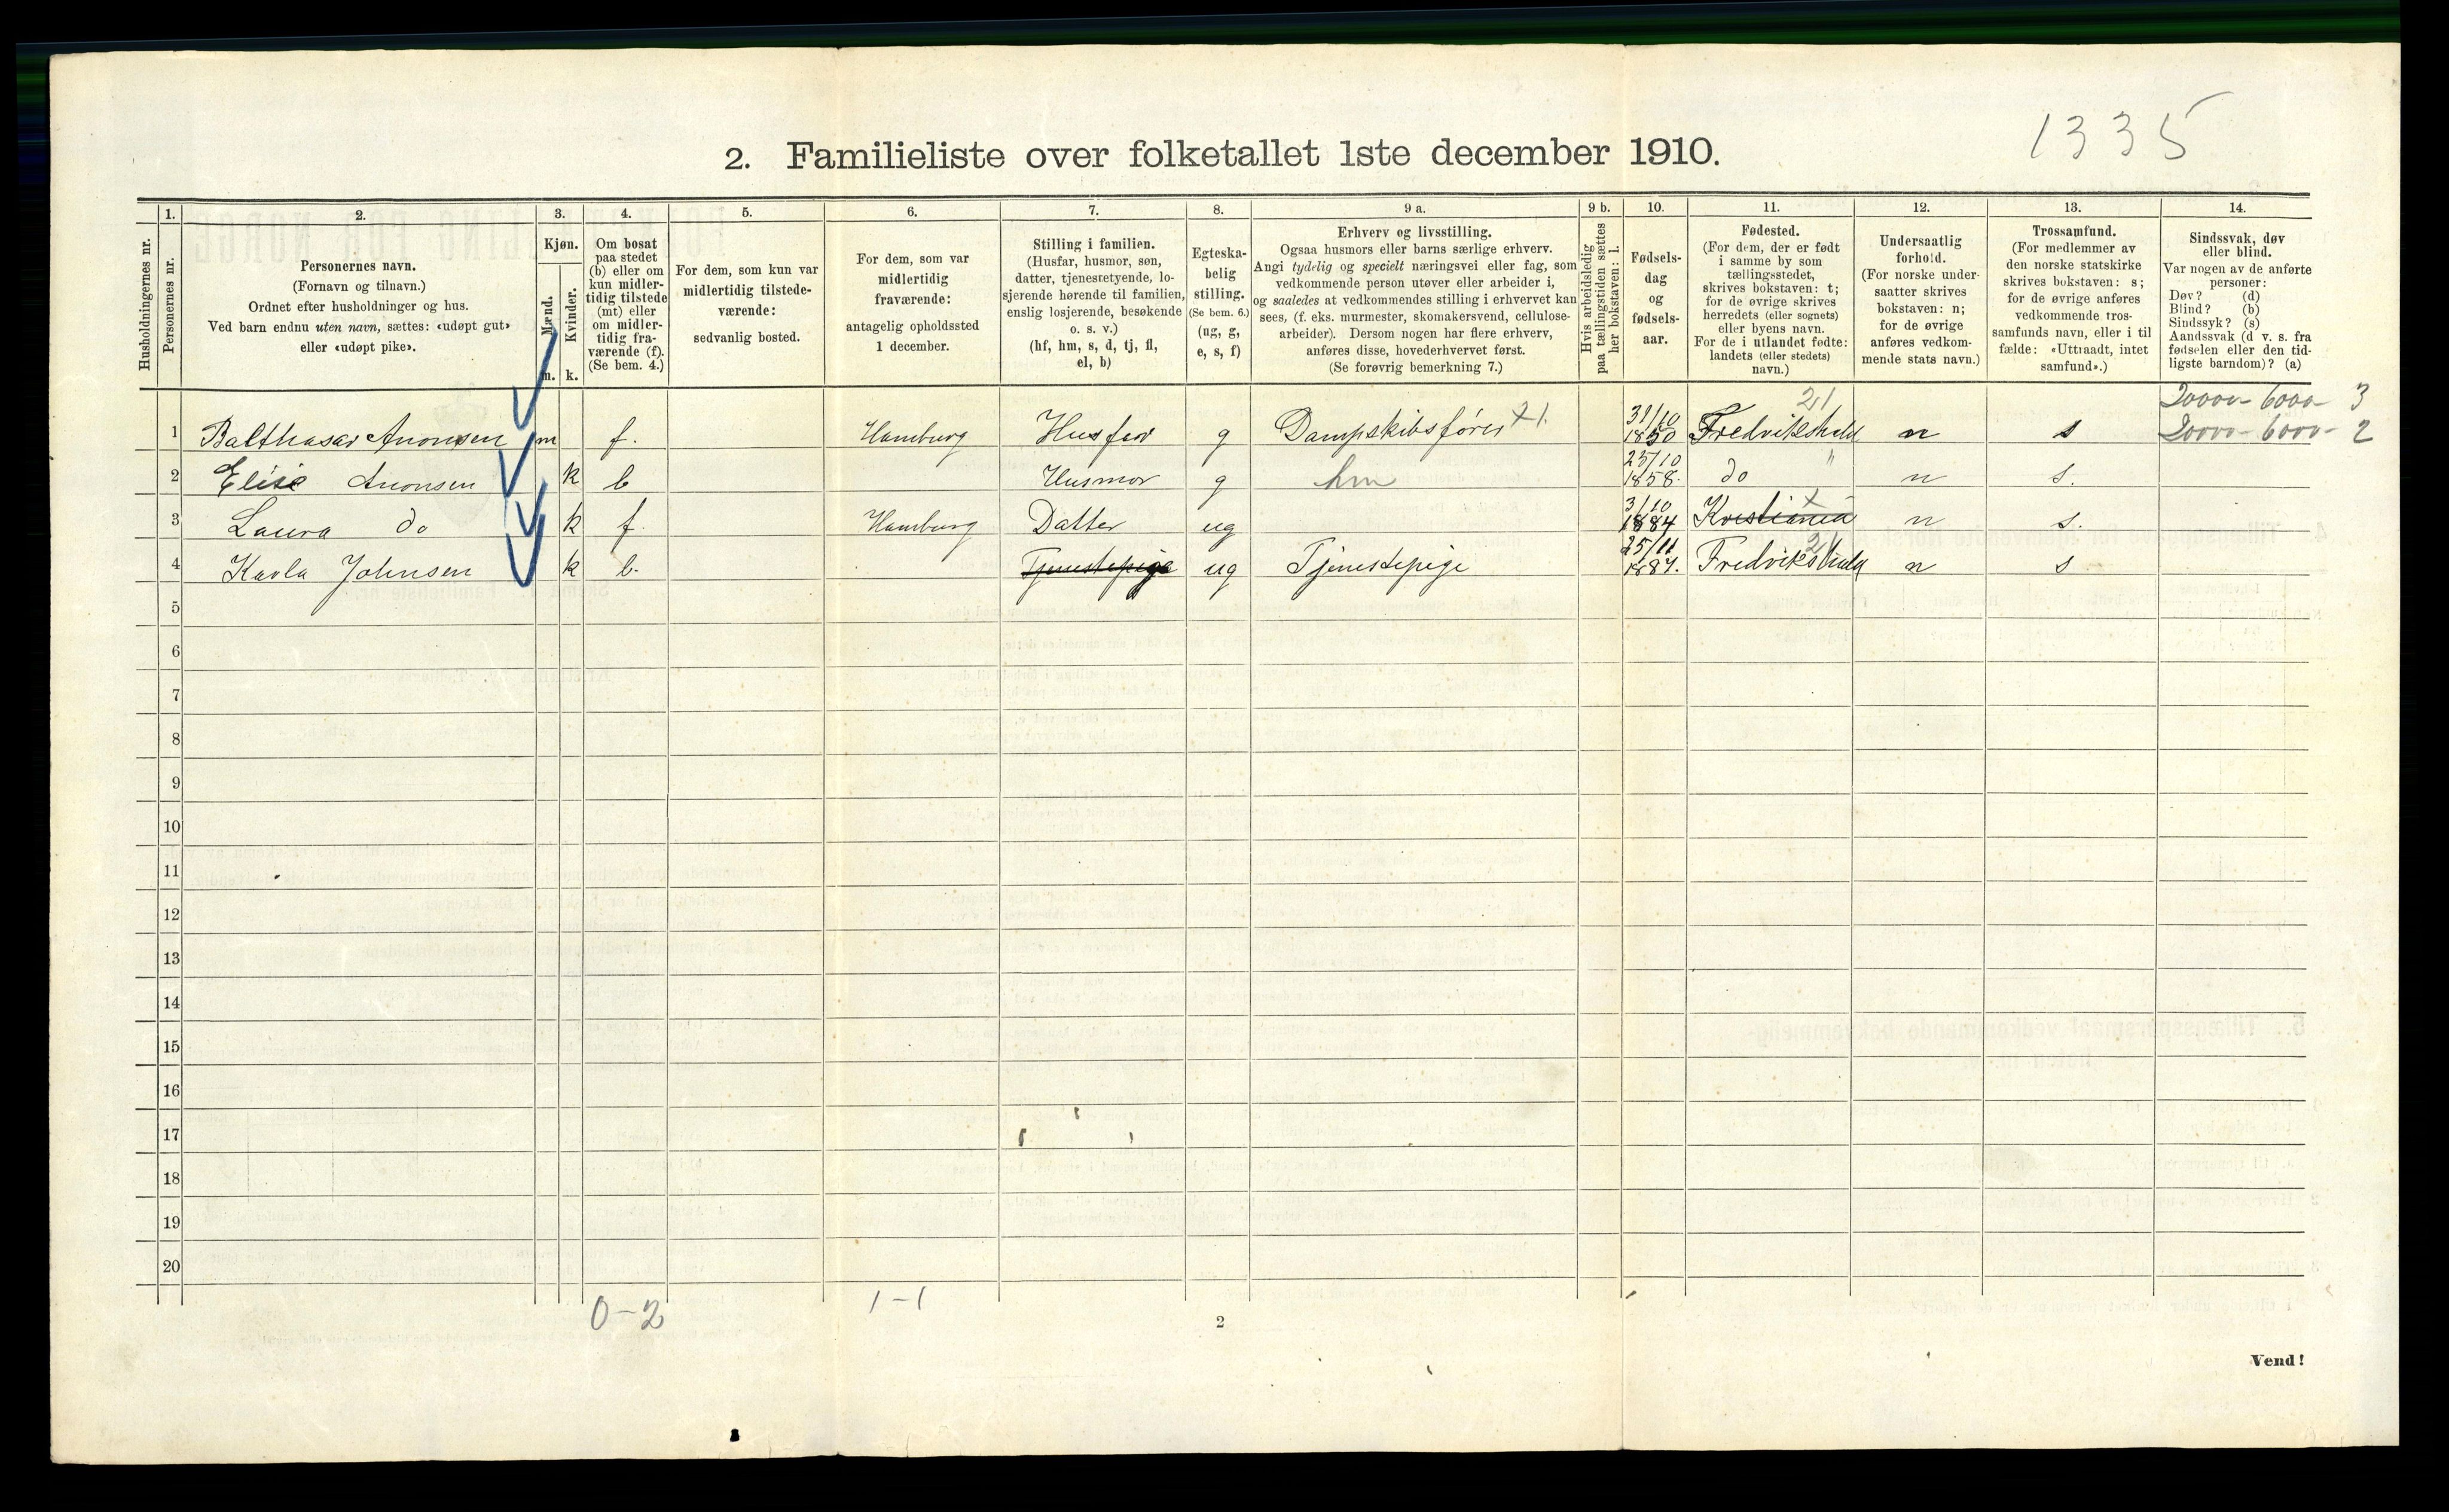 1335
2. Familieliste over folketallet 1ste december 1910.
Husholdningernes nr.
1.
Personernes nr.
2.
Personernes navn.
(Fornavn og tilnavn.)
Ordnet efter husholdninger og hus.
Ved barn endnu uten navn, sættes: «udøpt gut»
eller «udøpt pike».
3.
Kjøn.
Mænd.
Kvinder.
m. k.
4.
Om bosat
paa stedet
(b) eller om
kun midler-
tidig tilstede
(mt) eller
om midler-
tidig fra-
værende (f).
(Se bem. 4.)
5.
For dem, som kun var
midlertidig tilstede-
værende:
sedvanlig bosted.
6.
For dem, som var
midlertidig
fraværende:
antagelig opholdssted
1 december.
7.
Stilling i familien.
(Husfar, husmor, søn,
datter, tjenestetyende, lo-
sjerende hørende til familien,
enslig losjerende, besøkende
o. s. v.)
(hf, hm, s, d, tj, fl,
el, b)
8.
Egteska-
belig
stilling.
(Se bem. 6.)
(ug, g,
e, s, f)
9 a.
Erhverv og livsstilling.
Ogsaa husmors eller barns særlige erhverv.
Angi tydelig og specielt næringsvei eller fag, som
vedkommende person utøver eller arbeider i,
og saaledes at vedkommendes stilling i erhvervet kan
sees, (f. eks. murmester, skomakersvend, cellulose-
arbeider). Dersom nogen har flere erhverv,
anføres disse, hovederhvervet først.
(Se forøvrig bemerkning 7.)
9 b.
Hvis arbeidsledig
paa tællingstiden sættes
her bokstaven: l.
10.
Fødsels-
dag
og
fødsels-
aar.
11.
Fødested.
(For dem, der er født
i samme by som
tællingsstedet,
skrives bokstaven: t;
for de øvrige skrives
herredets (eller sognets)
eller byens navn.
For de i utlandet fødte:
landets (eller stedets)
navn.)
12.
Undersaatlig
forhold.
(For norske under-
saatter skrives
bokstaven: n;
for de øvrige
anføres vedkom-
mende stats navn.)
13.
Trossamfund.
(For medlemmer av
den norske statskirke
skrives bokstaven: s;
for de øvrige anføres
vedkommende tros-
samfunds navn, eller i til
fælde: «Uttraadt, intet
samfund».)
14.
Sindssvak, døv
eller blind.
Var nogen av de anførte
personer:
Døv? (d)
Blind? (b)
Sindssyk? (s)
Aandssvak (d v. s. fra
fødselen eller den tid-
ligste barndom)? (a)
21 20000 - 6000 - 3
1 Balthasar Anonsen m f. Hamburg Husfar g Dampskibsfører 31/10 1850 Fredrikshald n s 20000 - 6000 - 2
2 Elise Anonsen k b Husmor g hm 25/10 1858. do " n s.
3 Laura do k f. Hamburg Datter ug 3/10 1884 Kristiania n s.
21
4 Karla Johnsen k b. Tjenestepige ug Tjenestepige 25/11 1887. Fredrikshald n s
5
6
7
8
9
10
11
12
13
14
15
16
17
18
19
20
0-2 1-1
2
Vend!